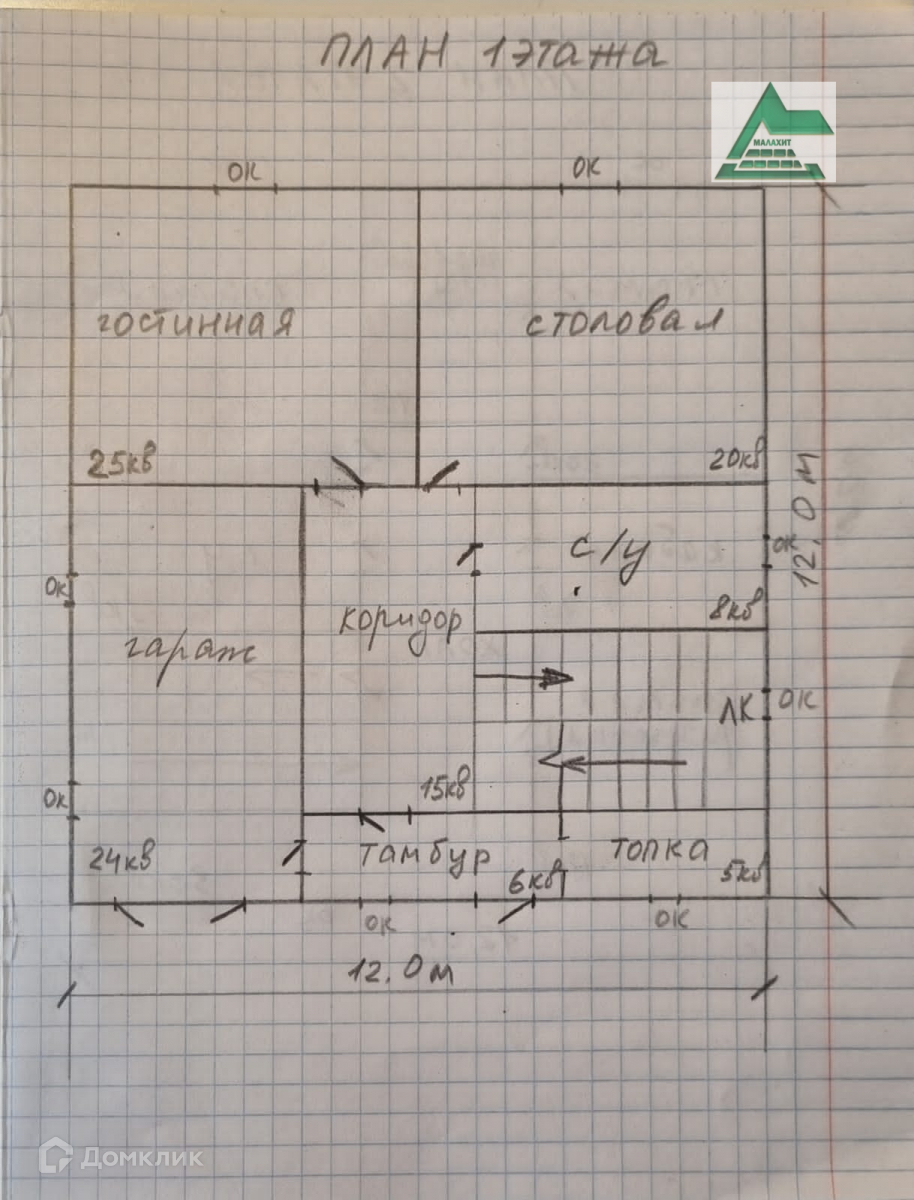 ПЛАН 1 этажа
МАЛАХИТ
ОК
ОК
гостинная
столовая
25кв
20кв
12,0м
с/у
ОК
ОК
коридор
8кв
гараж
ЛК
ОК
15кв
ОК
24кв
тамбур
топка
6кв
5кв
ОК
ОК
12.0м
Домклик